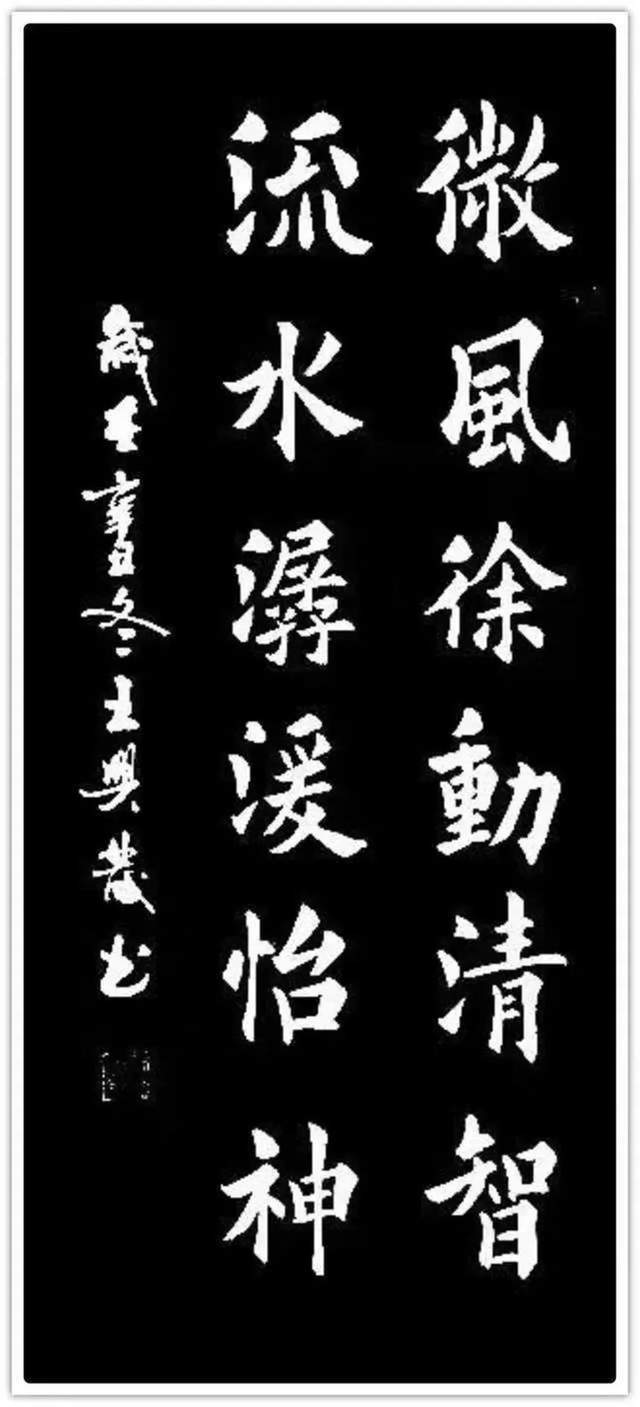 微風徐動清智
流水潺湲怡神
歲在辛丑冬王興書